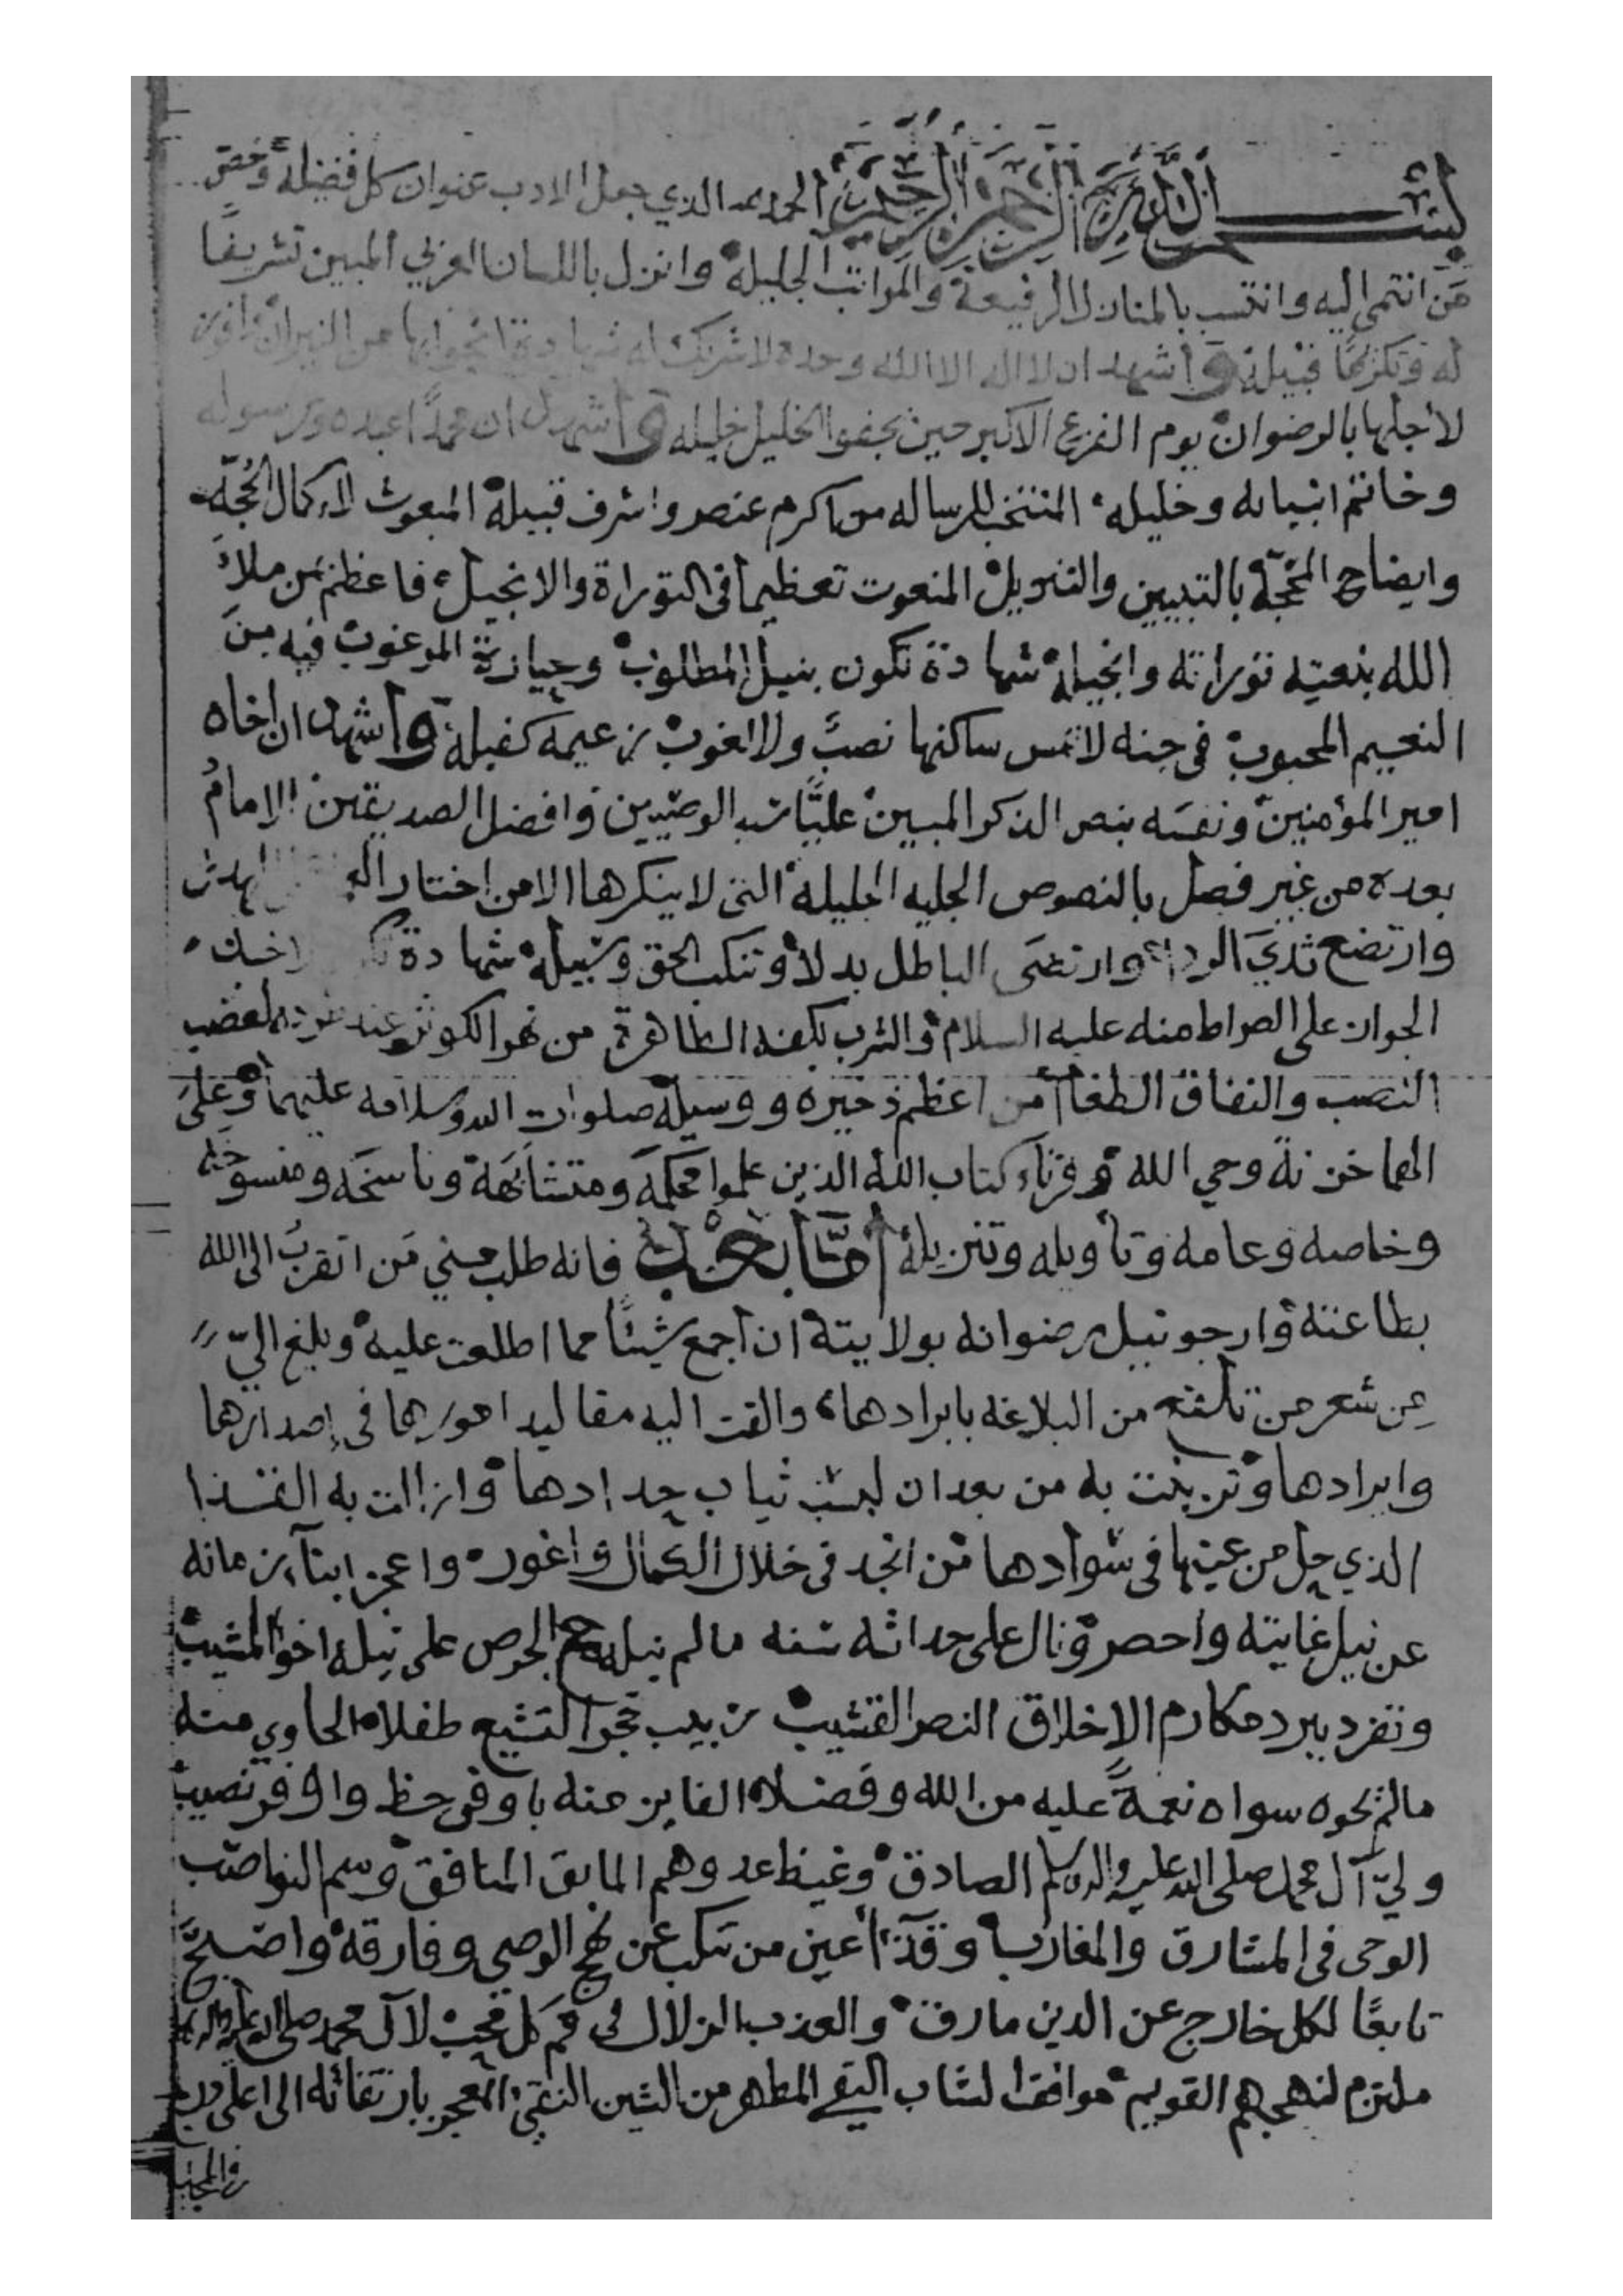 بسم الله الرحمن الرحيم الحمد لله الذي جعل الادب عنوان كل فضيلة وخص
من انتمى اليه وانتسب بالمنازل الرفيعة والمراتب الجليلة وانزل باللسان العربي المبين تشريفًا
له وتكريمًا قبيله واشهد ان لا اله الا الله وحده لا شريك له شهادة انجو بها من النيران وافوز
لاجلها بالرضوان يوم الفزع الاكبر حين يجفوا الخليل خليله واشهد ان محمدًا عبده ورسوله
وخاتم انبيائه وخليله المنتخب للرساله من اكرم عنصر واشرف قبيلة المبعوث لاكمال الحُجّة
وايضاح المحجّة بالتبيين والتنزيل المنعوت تعظيما في التوراة والانجيل فاعظم بمن ملأ
الله بنعته توراته وانجيله شهادة تكون بنيل المطلوب وحيازة المرغوب فيه من
النعيم المحبوب في جنه لا تمس ساكنها نصبٌ ولا لغوب زعيمه كفيله واشهد ان اخاه
امير المؤمنين ونفسه بنص الذكر المبين عليًّا سيد الوصيين وافضل الصديقين الامام
بعده من غير فصل بالنصوص الجليه الجليله التي لا ينكرها الا من اختار
وارتضع ثدي وارتضى الباطل بدلا وتنكب الحق وسبيله شهادة
الجواز على الصراط منه عليه السلام والشرب بكفه الطاهرة من نهر الكوثر عند
النصب والنفاق الطغام من اعظم ذخيره ووسيلة صلوات الله وسلامه عليهما وعلى
الهما خزنة وحي الله وقرناء كتاب الله الذين علموا محكمه ومتشابهه وناسخه ومنسوخه
وخاصه وعامه وتأويله وتنزيله أمّا بعد فانه طلب مني من اتقرب الى الله
بطاعته وارجو نيل رضوانه بولايته ان اجمع شيئًا مما اطلعت عليه وبلغ اليّ
من شعر من البلاغه بابرادها والقت اليه مقاليد امورها في إصدارها
وايرادها وتزينت به من بعد ان لبست ثياب حدادها وازالت به القذا
الذي حل من عينها في سوادها من انجد في خلال الكمال واغور واعجز ابناء زمانه
عن نيل غايته واحصر ونال على حداثه سنه ما لم ينله مع الحرص على نيله اخو المشيب
وتفرد ببرد مكارم الاخلاق النضر القشيب ربيب حجر التشيع طفلا الحاوي منه
مالم يحوه سواه نعمةً عليه من الله وفضلا الفايز منه باوفى حظ واوفر نصيب
وليّ آل محمد صلى الله عليه واله وسلم الصادق وغيظ عدوهم المايق المنافق وسم النواصب
الوحى في المشارق والمغارب وقذا أعين من تنكب عن نهج الوصي وفارقه واصبح
تابعًا لكل خارج عن الدين مارق والعذب الزلال في فم كل محب لآل محمد صلى الله عليه واله
ملتزم لنهجهم القويم موافق الشاب التقي المطهر من الشين النقي المعجز بارتقائه الى اعلى درج